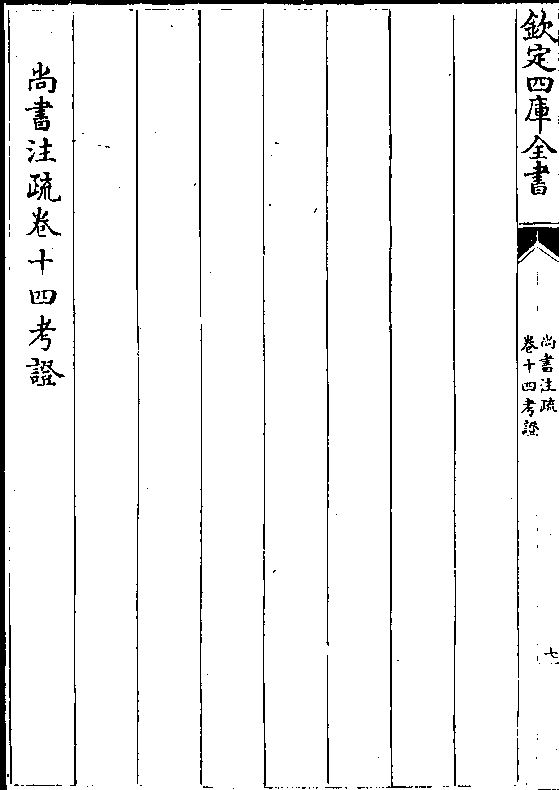 欽定四庫全書
尚書注疏
卷十四考證
七
尚書注疏卷十四考證